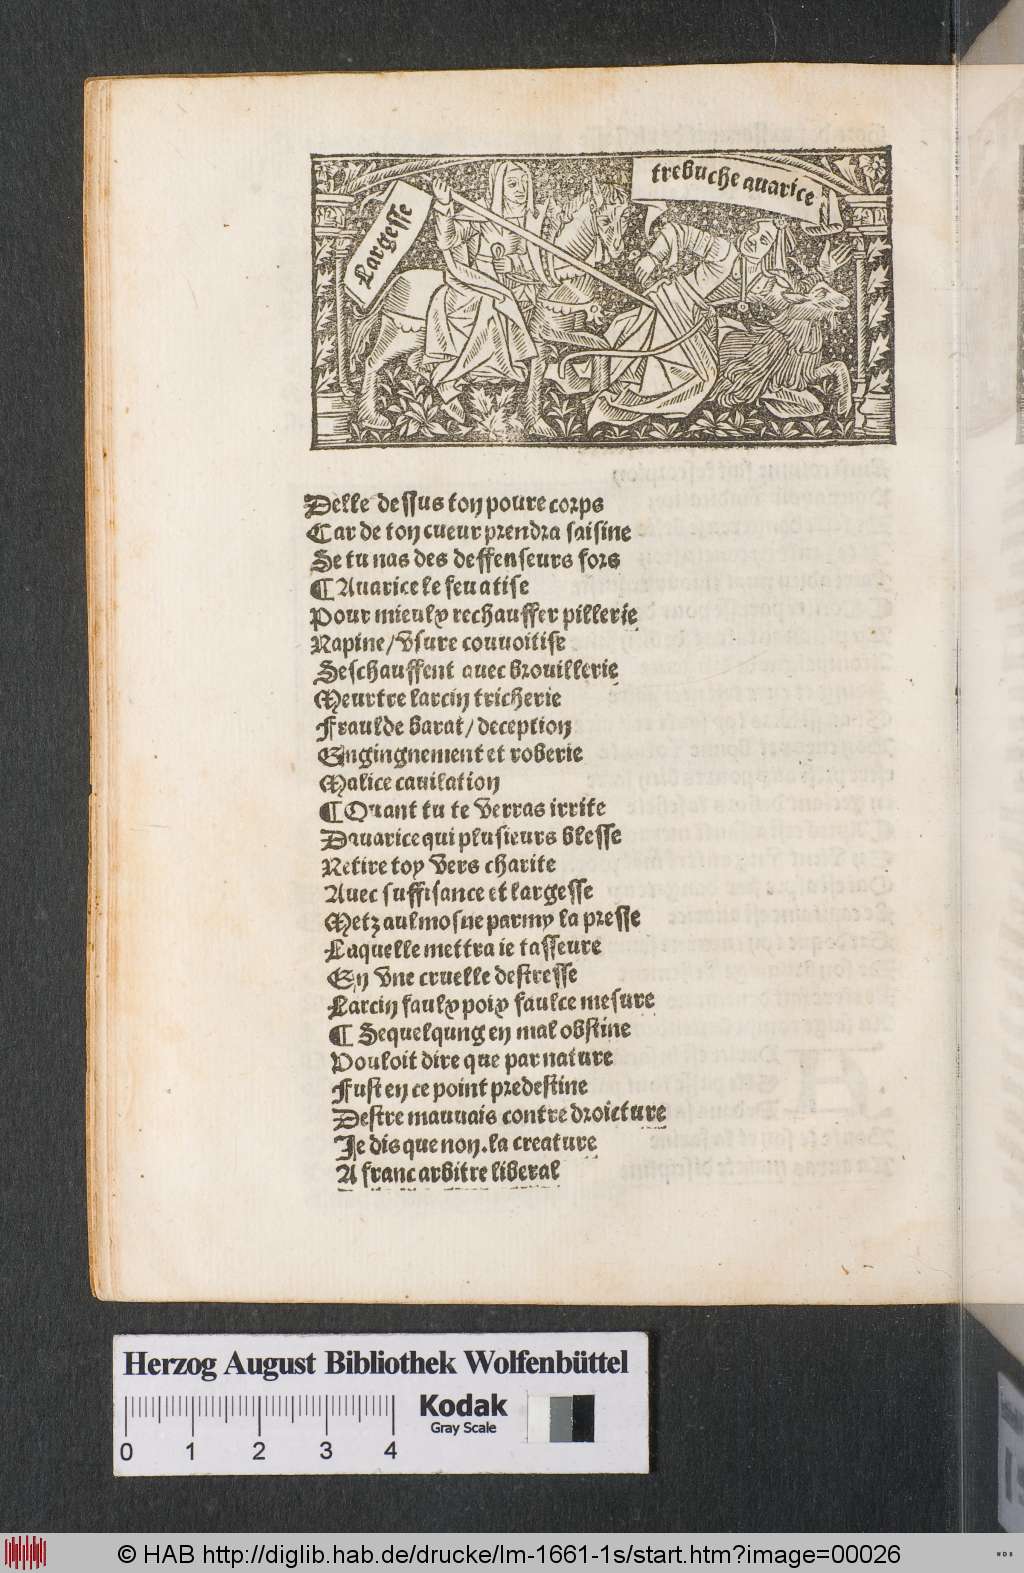 Largesse
trebuche auarice
Delle dessus ton poure corps
Car de ton cueur prendra saisine
Se tu nas des deffenseurs fors
¶ Auarice le feu atise
Pour mieulx rechauffer pillerie
Rapine/ vsure couuoitise
Seschauffent auec brouillerie
Meurtre larcin tricherie
Fraulde barat/ deception
Engingnement et roberie
Malice cauilation
¶ Quant tu te verras irrite
Dauarice qui plusieurs blesse
Retire toy vers charite
Auec suffisance et largesse
Metz aulmosne parmy la presse
Laquelle mettra ie tasseure
En vne cruelle destresse
Larcin faulx poix faulce mesure
¶ Se quelqung en mal obstine
Vouloit dire que par nature
Fust en ce point predestine
Destre mauuais contre droicture
Je dis que non. la creature
A franc arbitre liberal
Herzog August Bibliothek Wolfenbüttel
Kodak
Gray Scale
0 1 2 3 4
© HAB http://diglib.hab.de/drucke/lm-1661-1s/start.htm?image=00026